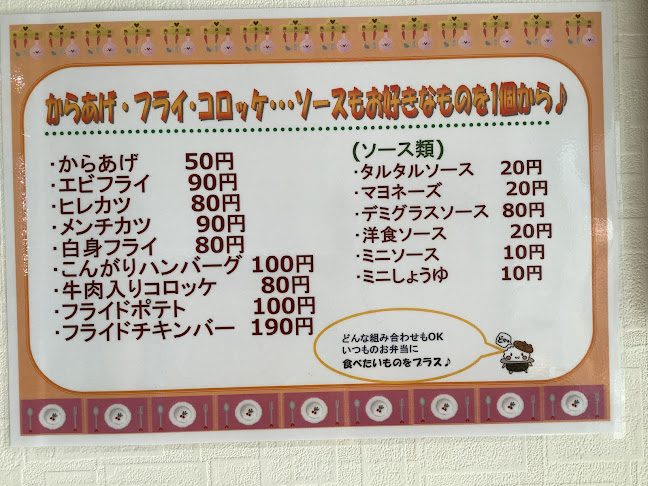 からあげ・フライ・コロッケ…ソースもお好きなものを1個から♪
・からあげ 50円
・エビフライ 90円
・ヒレカツ 80円
・メンチカツ 90円
・白身フライ 80円
・こんがりハンバーグ 100円
・牛肉入りコロッケ 80円
・フライドポテト 100円
・フライドチキンバー 190円
(ソース類)
・タルタルソース 20円
・マヨネーズ 20円
・デミグラスソース 80円
・洋食ソース 20円
・ミニソース 10円
・ミニしょうゆ 10円
どんな組み合わせもOK
いつものお弁当に
食べたいものをプラス♪